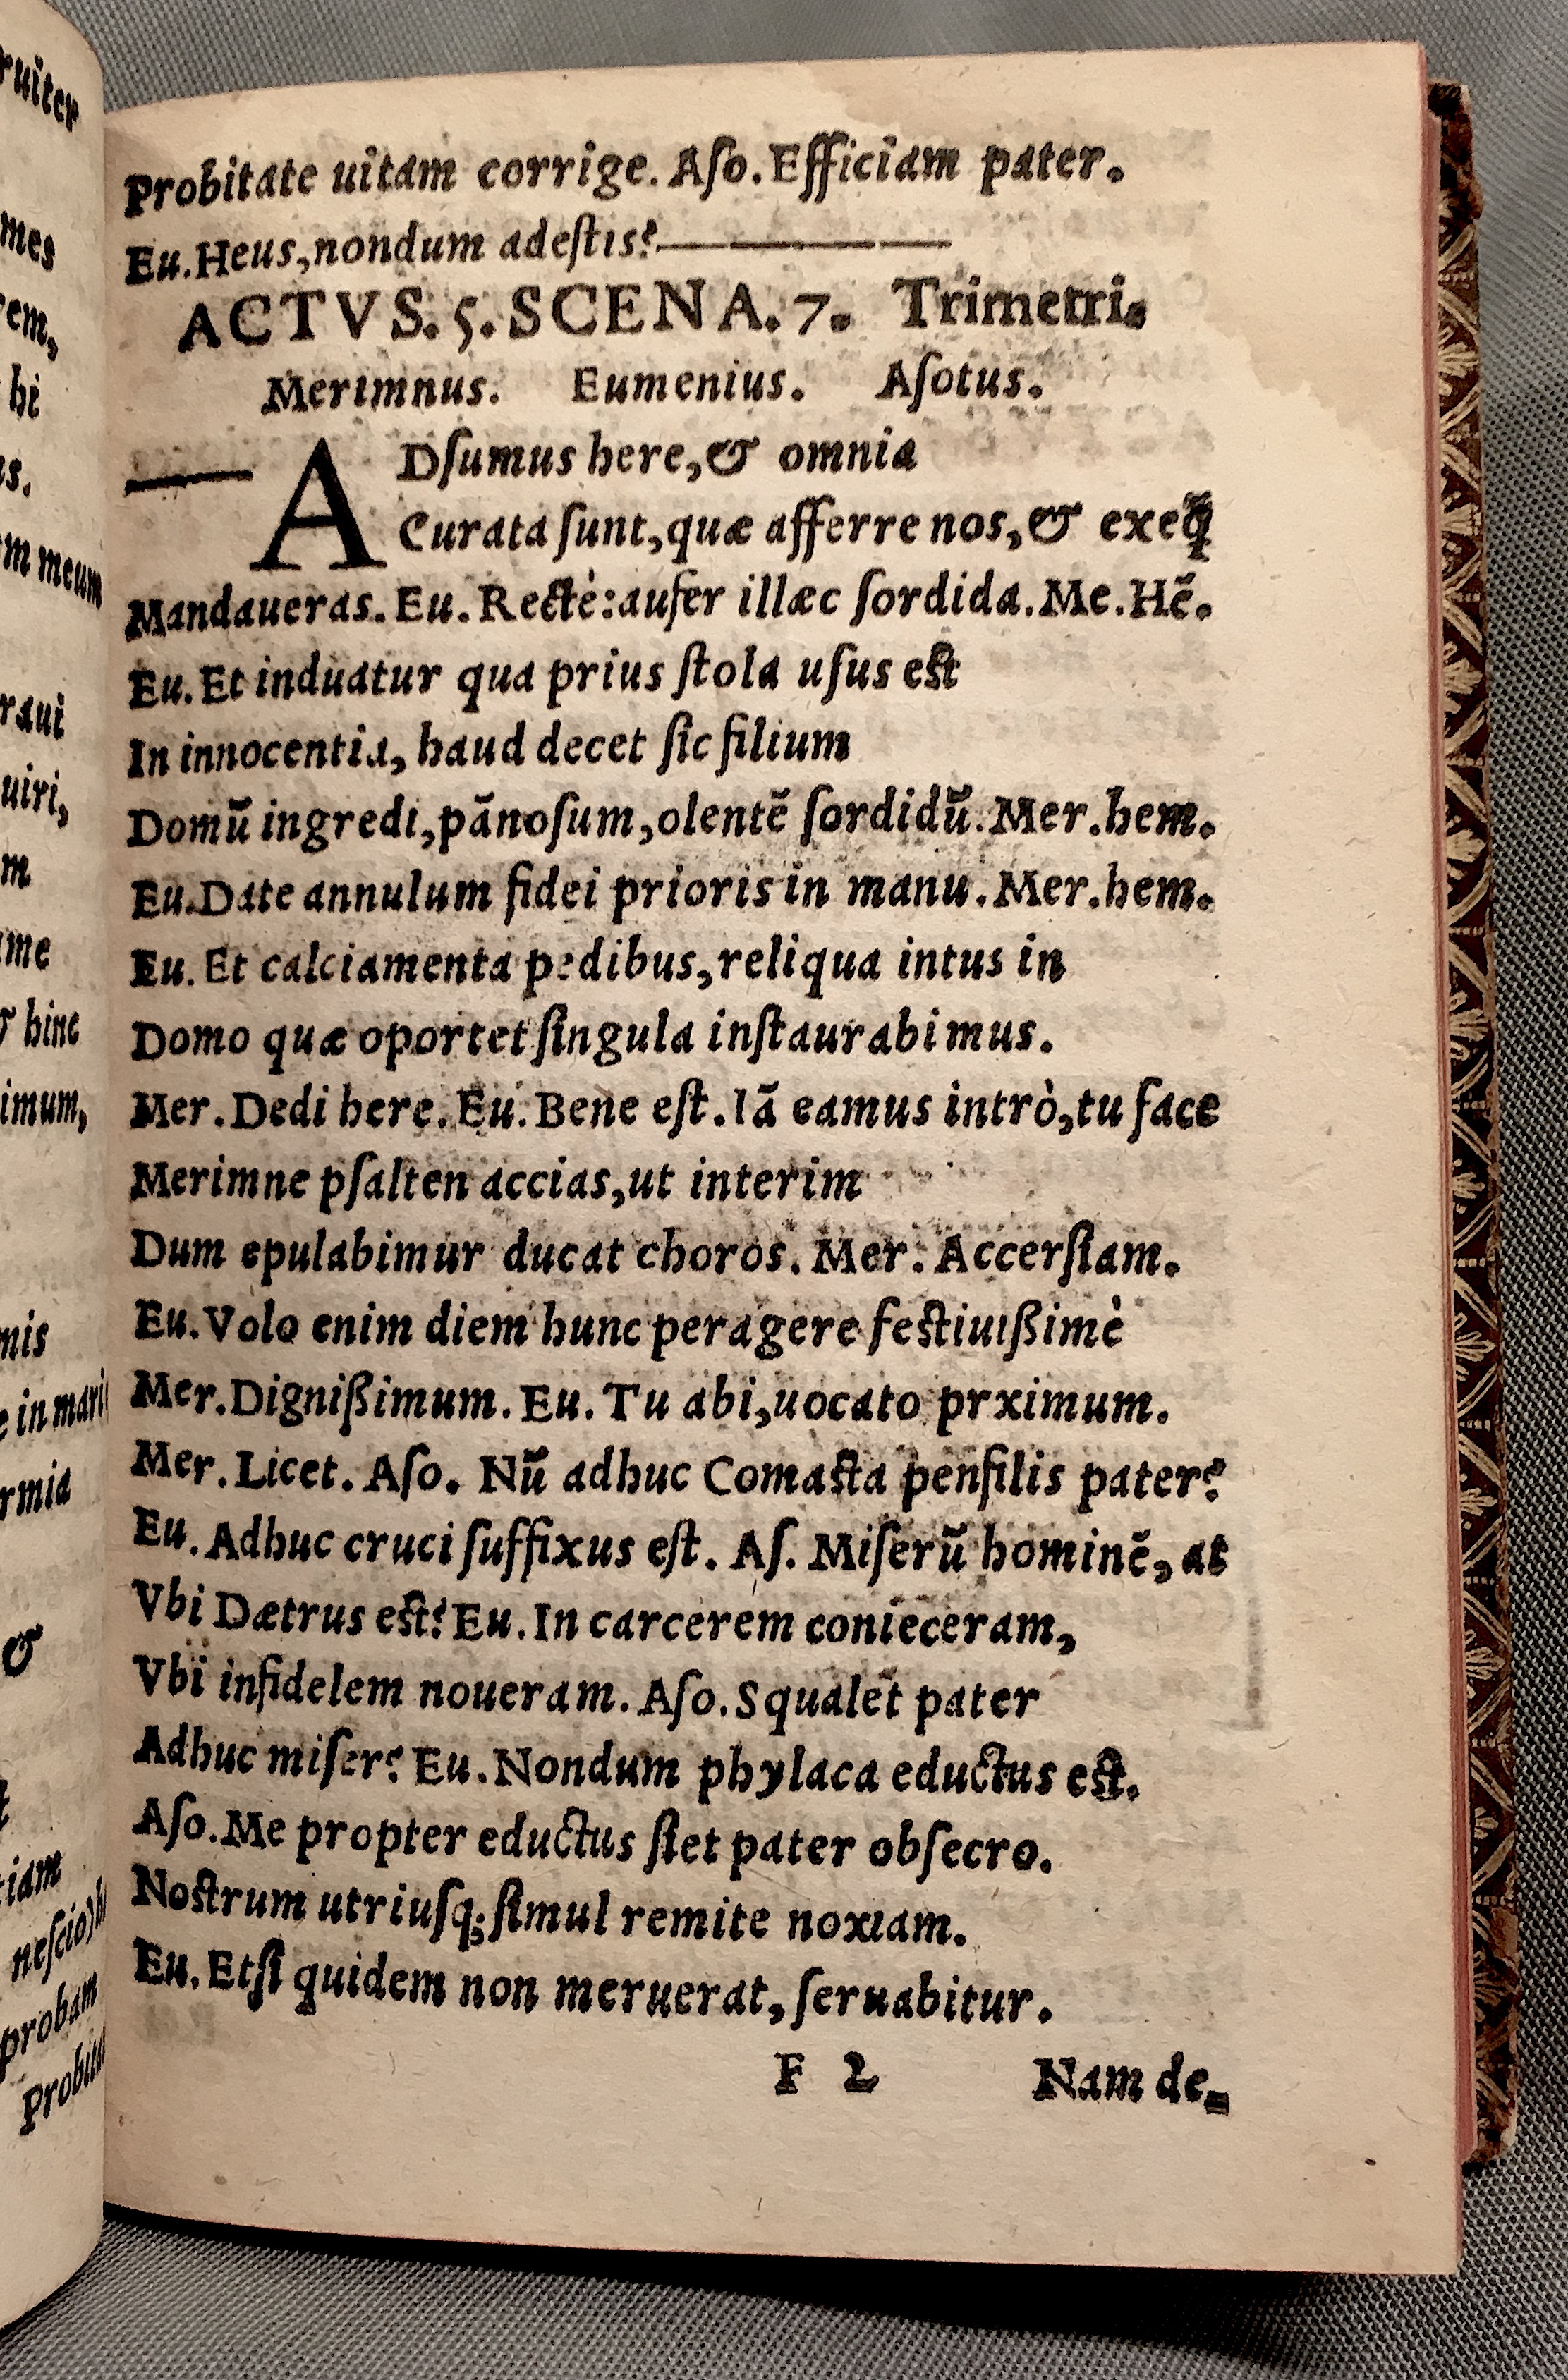 Probitate uitam corrige. Aſo. Efficiam pater.
Eu. Heus, nondum adeſtis?
ACTVS. 5. SCENA. 7. Trimetri.
Merimnus. Eumenius. Aſotus.
ADſumus here, & omnia
Curata ſunt, quæ afferre nos, & exeq̃
Mandaueras. Eu. Rectè: aufer illæc ſordida. Me. Hẽ.
Eu. Et induatur qua prius ſtola uſus eſt
In innocentia, haud decet ſic filium
Domũ ingredi, pãnoſum, olentẽ ſordidũ. Mer. hem.
Eu. Date annulum fidei prioris in manu. Mer. hem.
Eu. Et calciamenta pedibus, reliqua intus in
Domo quæ oportet ſingula inſtaurabimus.
Mer. Dedi here. Eu. Bene eſt. Iã eamus intrò, tu face
Merimne pſalten accias, ut interim
Dum epulabimur ducat choros. Mer. Accerſiam.
Eu. Volo enim diem hunc peragere feſtiuißimè
Mer. Dignißimum. Eu. Tu abi, uocato prximum.
Mer. Licet. Aſo. Nũ adhuc Comaſta penſilis pater?
Eu. Adhuc cruci ſuffixus eſt. Aſ. Miſerũ hominẽ, at
Vbi Dætrus eſt? Eu. In carcerem conieceram,
Vbi infidelem noueram. Aſo. Squalet pater
Adhuc miſer? Eu. Nondum phylaca eductus eſt.
Aſo. Me propter eductus ſiet pater obſecro.
Noſtrum utriuſq; ſimul remite noxiam.
Eu. Etſi quidem non meruerat, ſeruabitur.
F 2 Nam de-